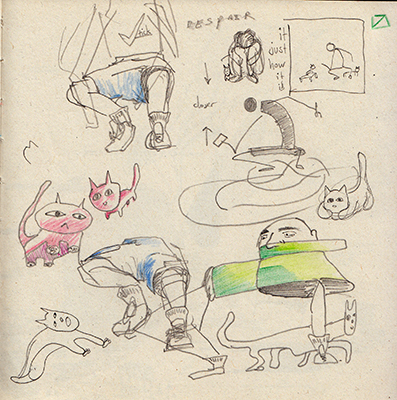 DESPAIR
it
just
how
it
is
closer